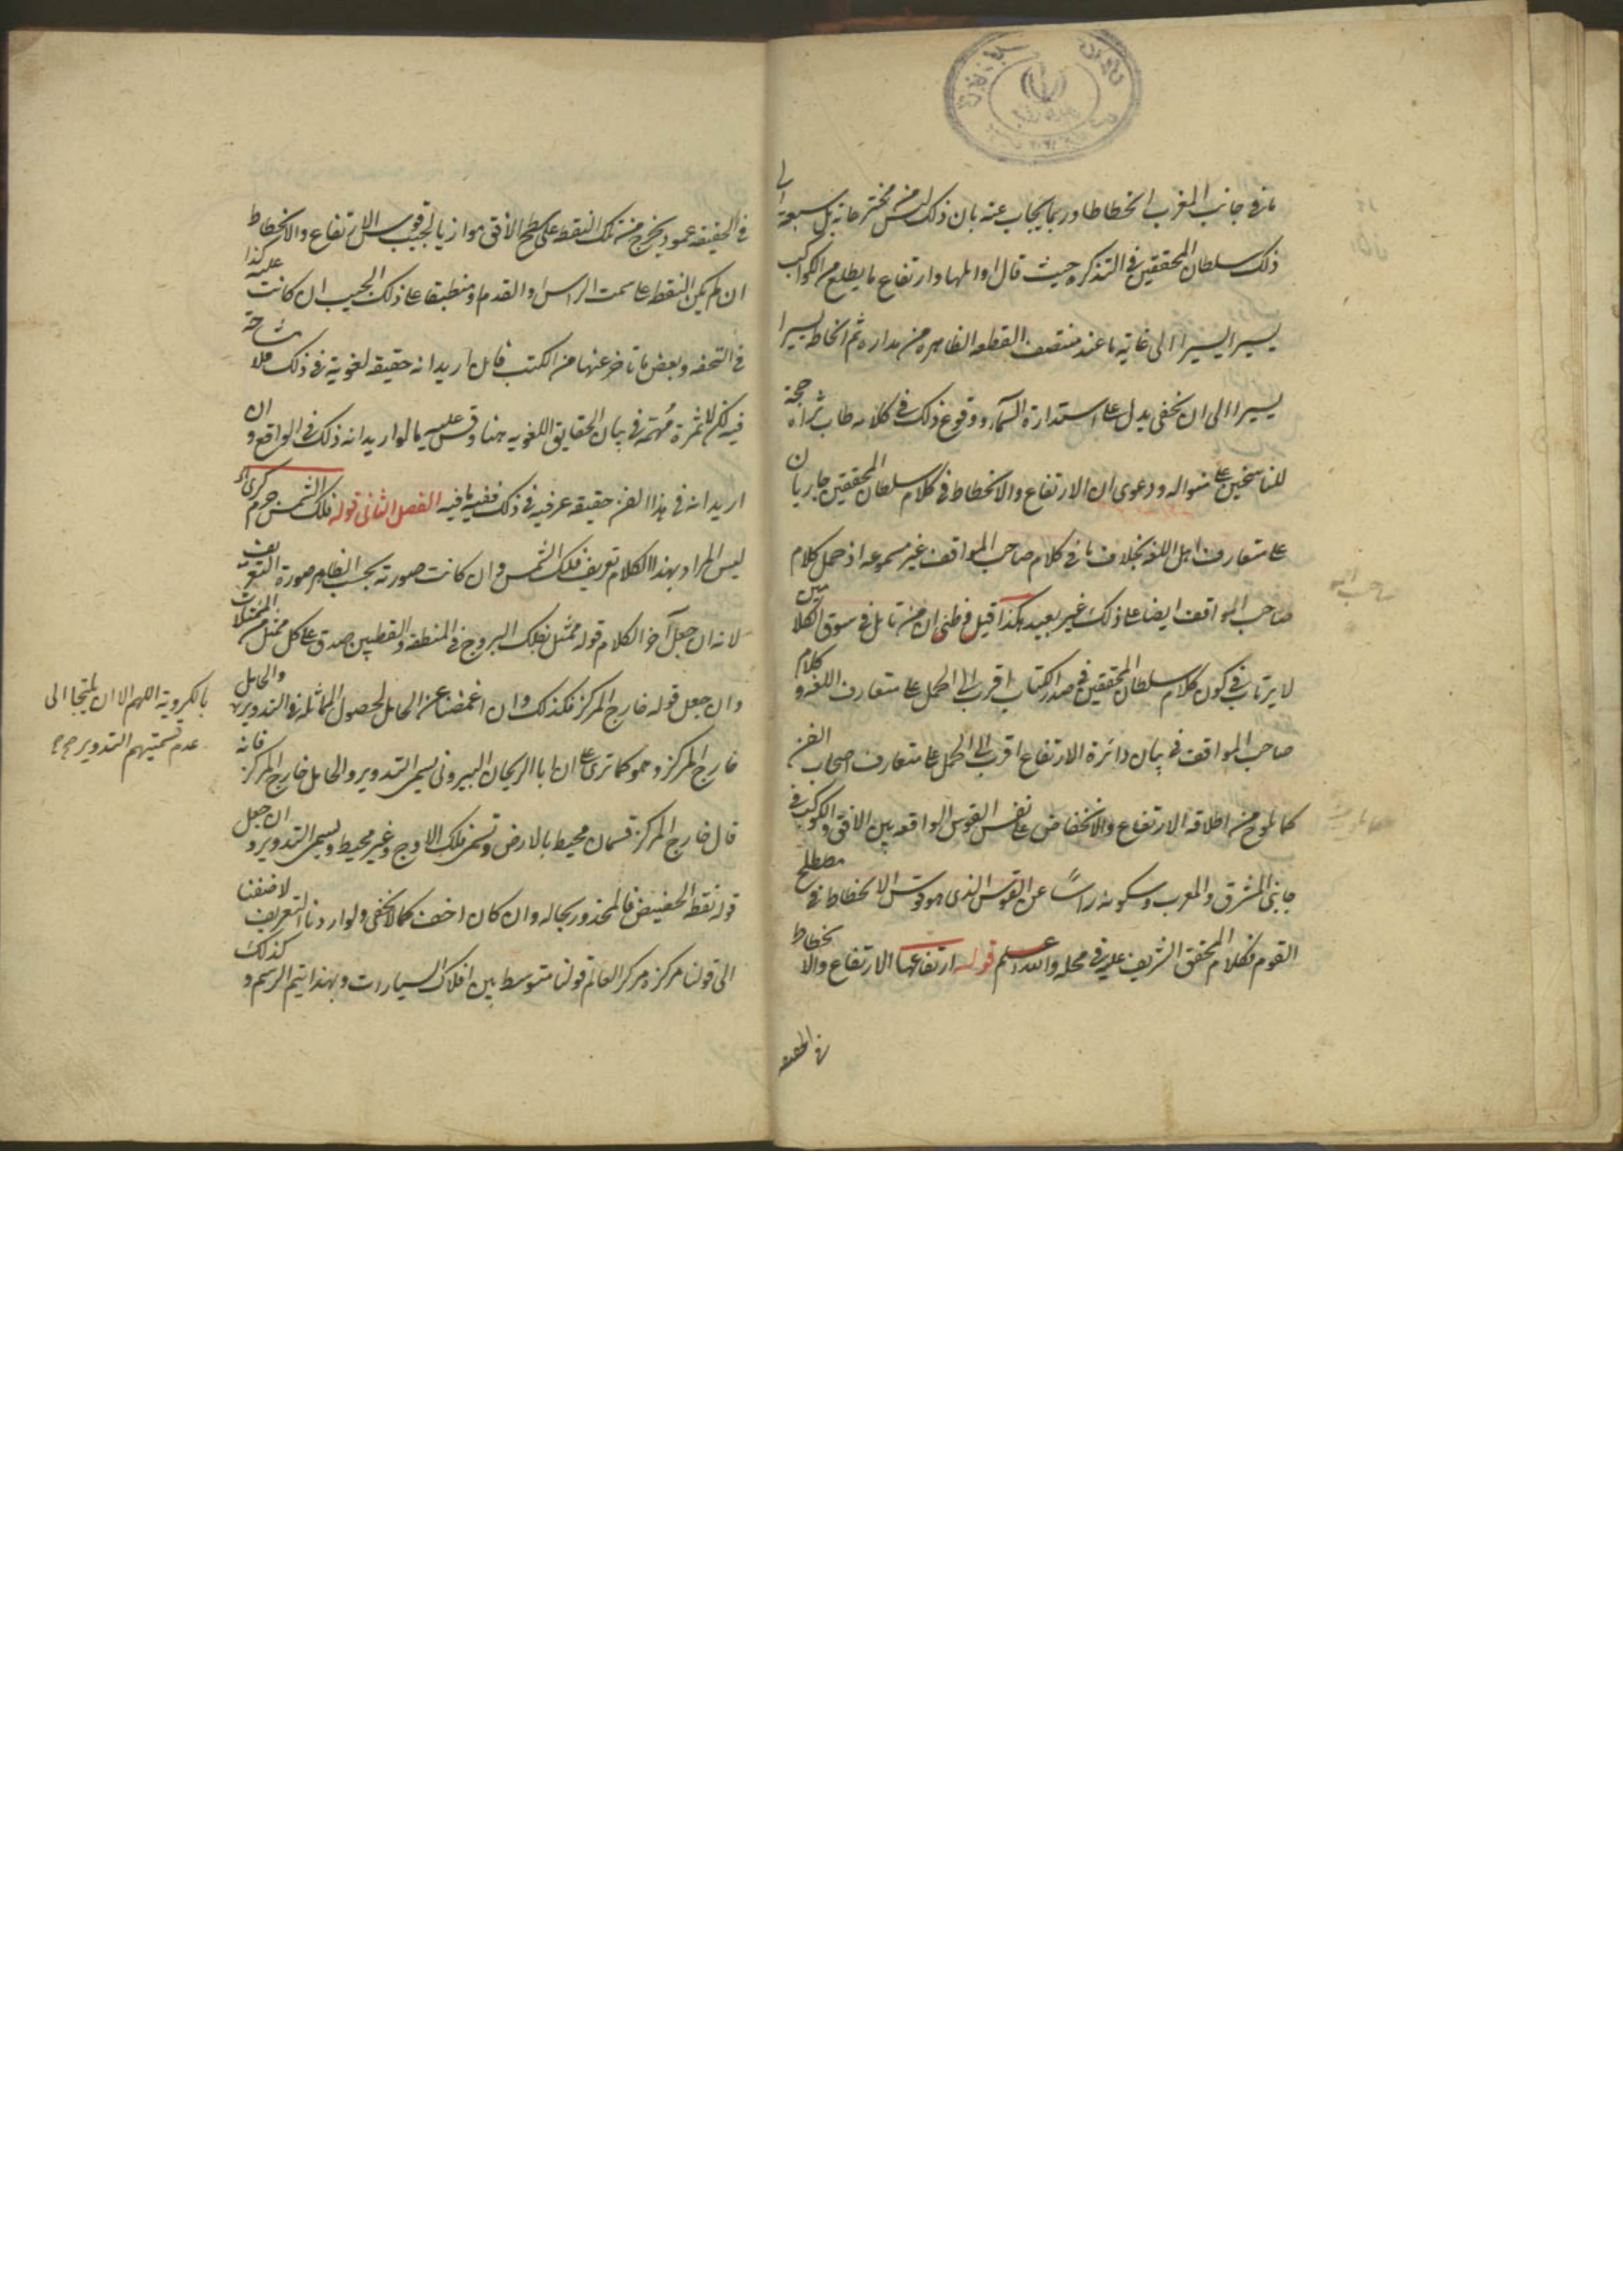 ما في جانب المغرب انخطاطا وربما يجاب عنه بان ذلك ليس من مخترعاته بل سبقه الى
ذلك سلطان المحققين في التذكره حيث قال اوايلها وارتفاع ما يطلع من الكواكب
يسيرا يسيرا الى غاية ما عند منتصف القطعه الظاهره من مداره ثم انخاطه يسيرا
يسيرا الى ان يخفى يدل على استدارة السماء ووقوع ذلك في كلامه طاب ثراه حجة
للناسخين على منواله ودعوى ان الارتفاع والانخطاط في كلام سلطان المحققين جاريان
على متعارف اهل اللغه بخلاف ما في كلام صاحب المواقف غير مسموعه اذ حمل كلام
صاحب المواقف ايضا على ذلك غير بعيد هكذا قيل وظنى ان من تامل في سوق الكلامين
لا يرتاب في كون كلام سلطان المحققين في صدر الكتاب اقرب الى الحمل على متعارف اللغه وكلام
صاحب المواقف في بيان دائرة الارتفاع اقرب الى الحمل على متعارف اصحاب الفن
كما يلوح من اطلاقه الارتفاع والانخفاض على نفس القوس الواقعه بين الافق والكوكب في
جانبى المشرق والمغرب وسكوته راسًا عن القوس الذى هو قوس الانخطاط في مصطلح
القوم فكلام المحقق الشريف عليه في محله والله اعلم قوله ارتفاعها الارتفاع والانخطاط
في الحقيقه
في الحقيقه عمود يخرج من تلك النقطه على سطح الافق موازيا لجيب قوس الارتفاع والانخطاط
ان لم يكن النقطه على سمت الراس او القدم او منطبقا على ذلك الجيب ان كانت عليه كذا
في التحفه وبعض ما تاخر عنها من الكتب فان اريد انه حقيقه لغوية في ذلك فلا مشاحة
فيه لكن لا ثمرة مهمّة في بيان الحقايق اللغويه هنا وقس عليه ما لو اريد انه ذلك في الواقع وان
اريد انه في هذا الفن حقيقه عرفيه في ذلك ففيه ما فيه الفصل الثانى قوله فلك الشمس جرم كرى اه
ليس المراد بهذا الكلام تعريف فلك الشمس وان كانت صورته بحسب الظاهر صورة التعريف
لانه ان جعل آخر الكلام قوله ممثل بفلك البروج في المنطقه والقطبين صدق على كل ممثل من الممثلات
وان جعل قوله خارج المركز فكذلك وان اغمضنا عن الحامل لحصول المماثله في التدوير والحامل
خارج المركز وهو كما ترى على ان ابا الريحان البيرونى يسمى التدوير والحامل خارج المركز فانه
قال خارج المركز قسمان محيط بالارض وتسمى فلك الاوج وغير محيط ويسمى التدوير وان جعل
قوله نقطه الحضيض فالمحذور بحاله وان كان اخف كما لا يخفى ولو اردنا التعريف لاضفنا
الى قولنا مركزه مركز العالم قولنا متوسط بين افلاك السيارات وبهذا يتم الرسم وكذلك
بالكروية اللهم الا ان يلتجا الى
عدم تسميتهم التدوير